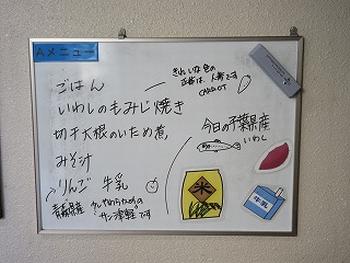 Aメニュー
ごはん
いわしのもみじ焼き
切干大根のいため煮
みそ汁
りんご 牛乳
きれいな色の
正体は、人参です
CARROT
今日の千葉県産
いわし
青森県産
"サン津軽"です
米
牛乳